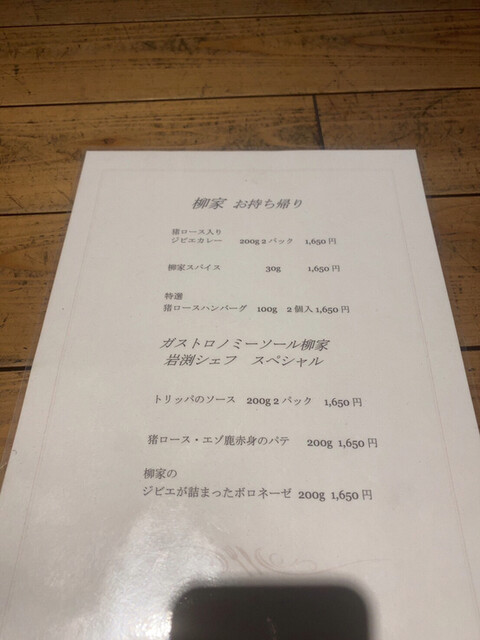 柳家 お持ち帰り
猪ロース入り
ジビエカレー 200g 2パック 1,650円
柳家スパイス 30g 1,650円
特選
猪ロースハンバーグ 100g 2個入 1,650円
ガストロノミーソール柳家
岩渕シェフ スペシャル
トリッパのソース 200g 2パック 1,650円
猪ロース・エゾ鹿赤身のパテ 200g 1,650円
柳家の
ジビエが詰まったボロネーゼ 200g 1,650円